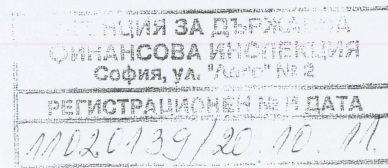 ЗА ДЪРЖАВНА
ФИНАНСОВА ИНСПЕКЦИЯ
София, ул. "Леге" № 2
РЕГИСТРАЦИОНЕН № И ДАТА
11020139/20.10.11.